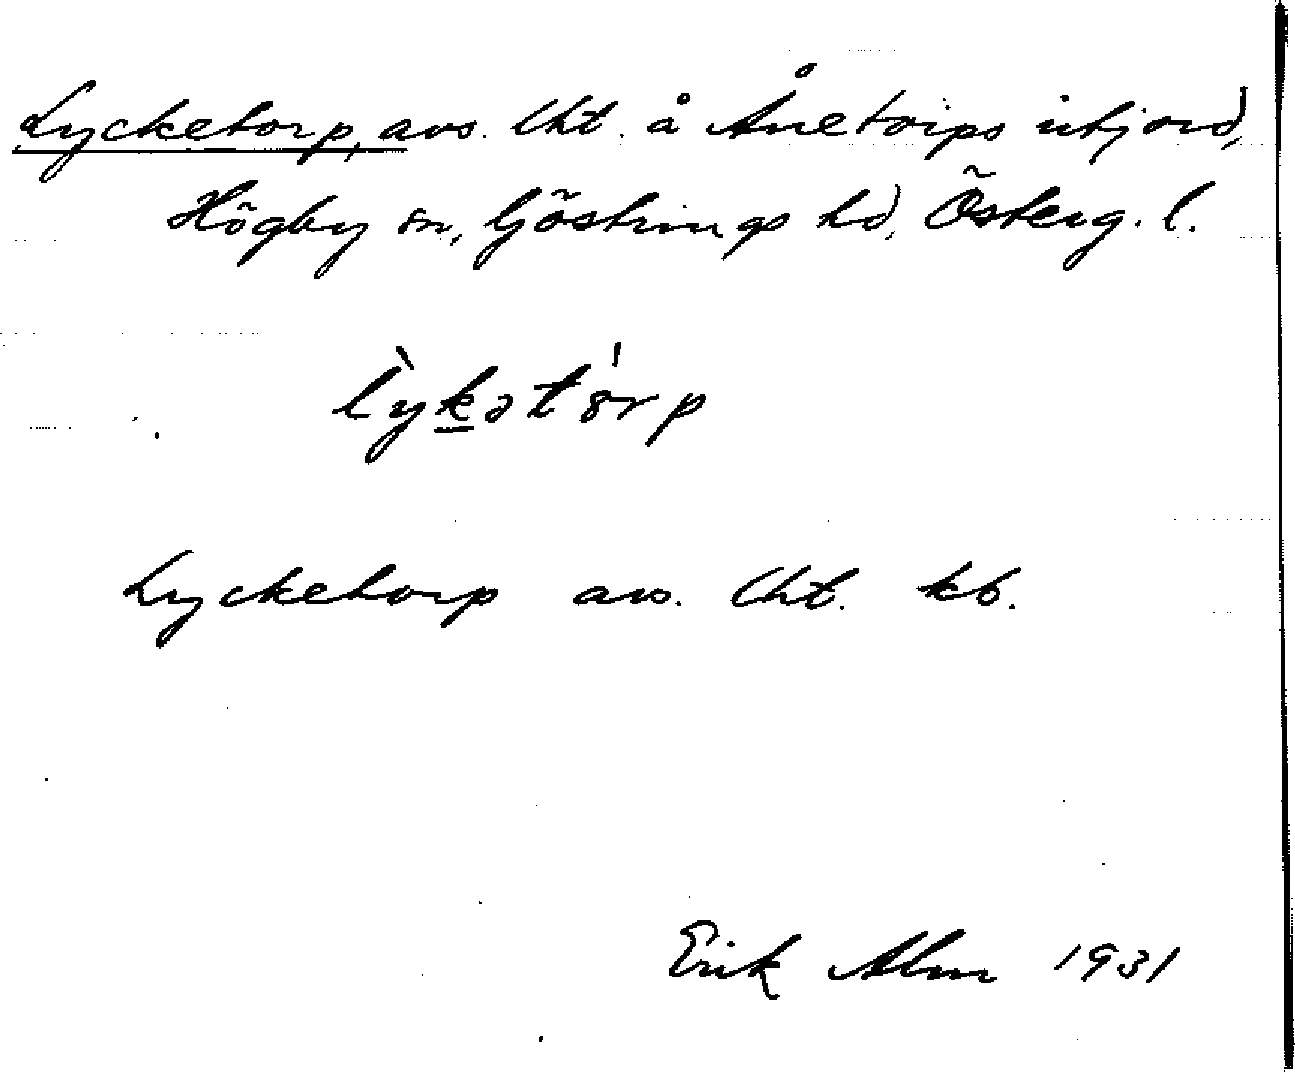 Lycketorp, avs. lht. å Ånetorps utjord,
Högby sn, Göstrings hd, Österg. l.
lỳkətórp
Lycketorp avs. lht. kb.
Erik Alm 1931